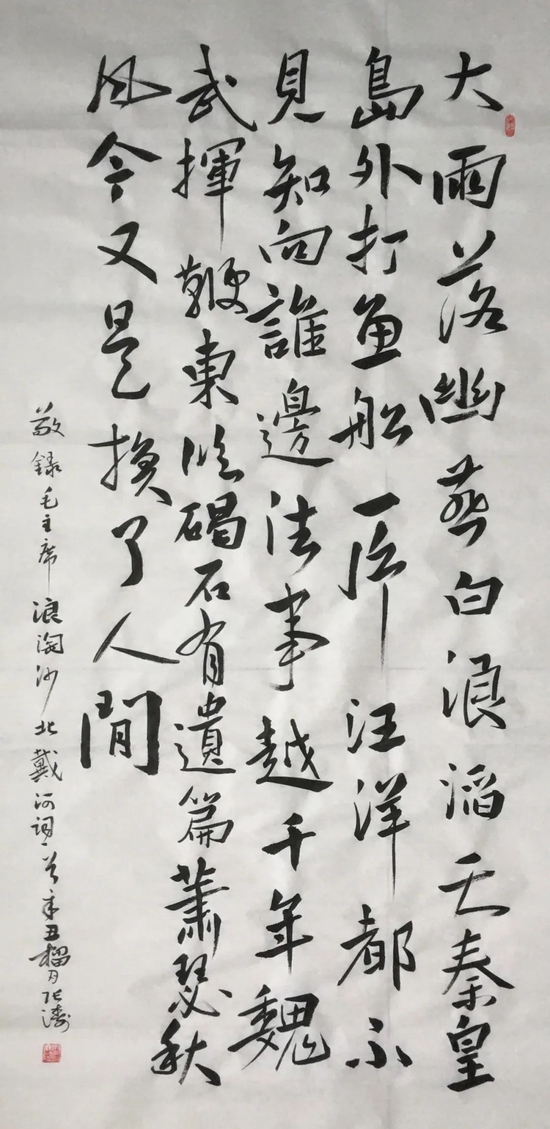 大雨落幽燕白浪滔天秦皇
島外打鱼船一片汪洋都不
見知向誰邊往事越千年魏
武揮鞭東临碣石有遺篇蕭瑟秋
风今又是换了人間
敬録毛主席浪淘沙北戴河词辛丑榴月张涛